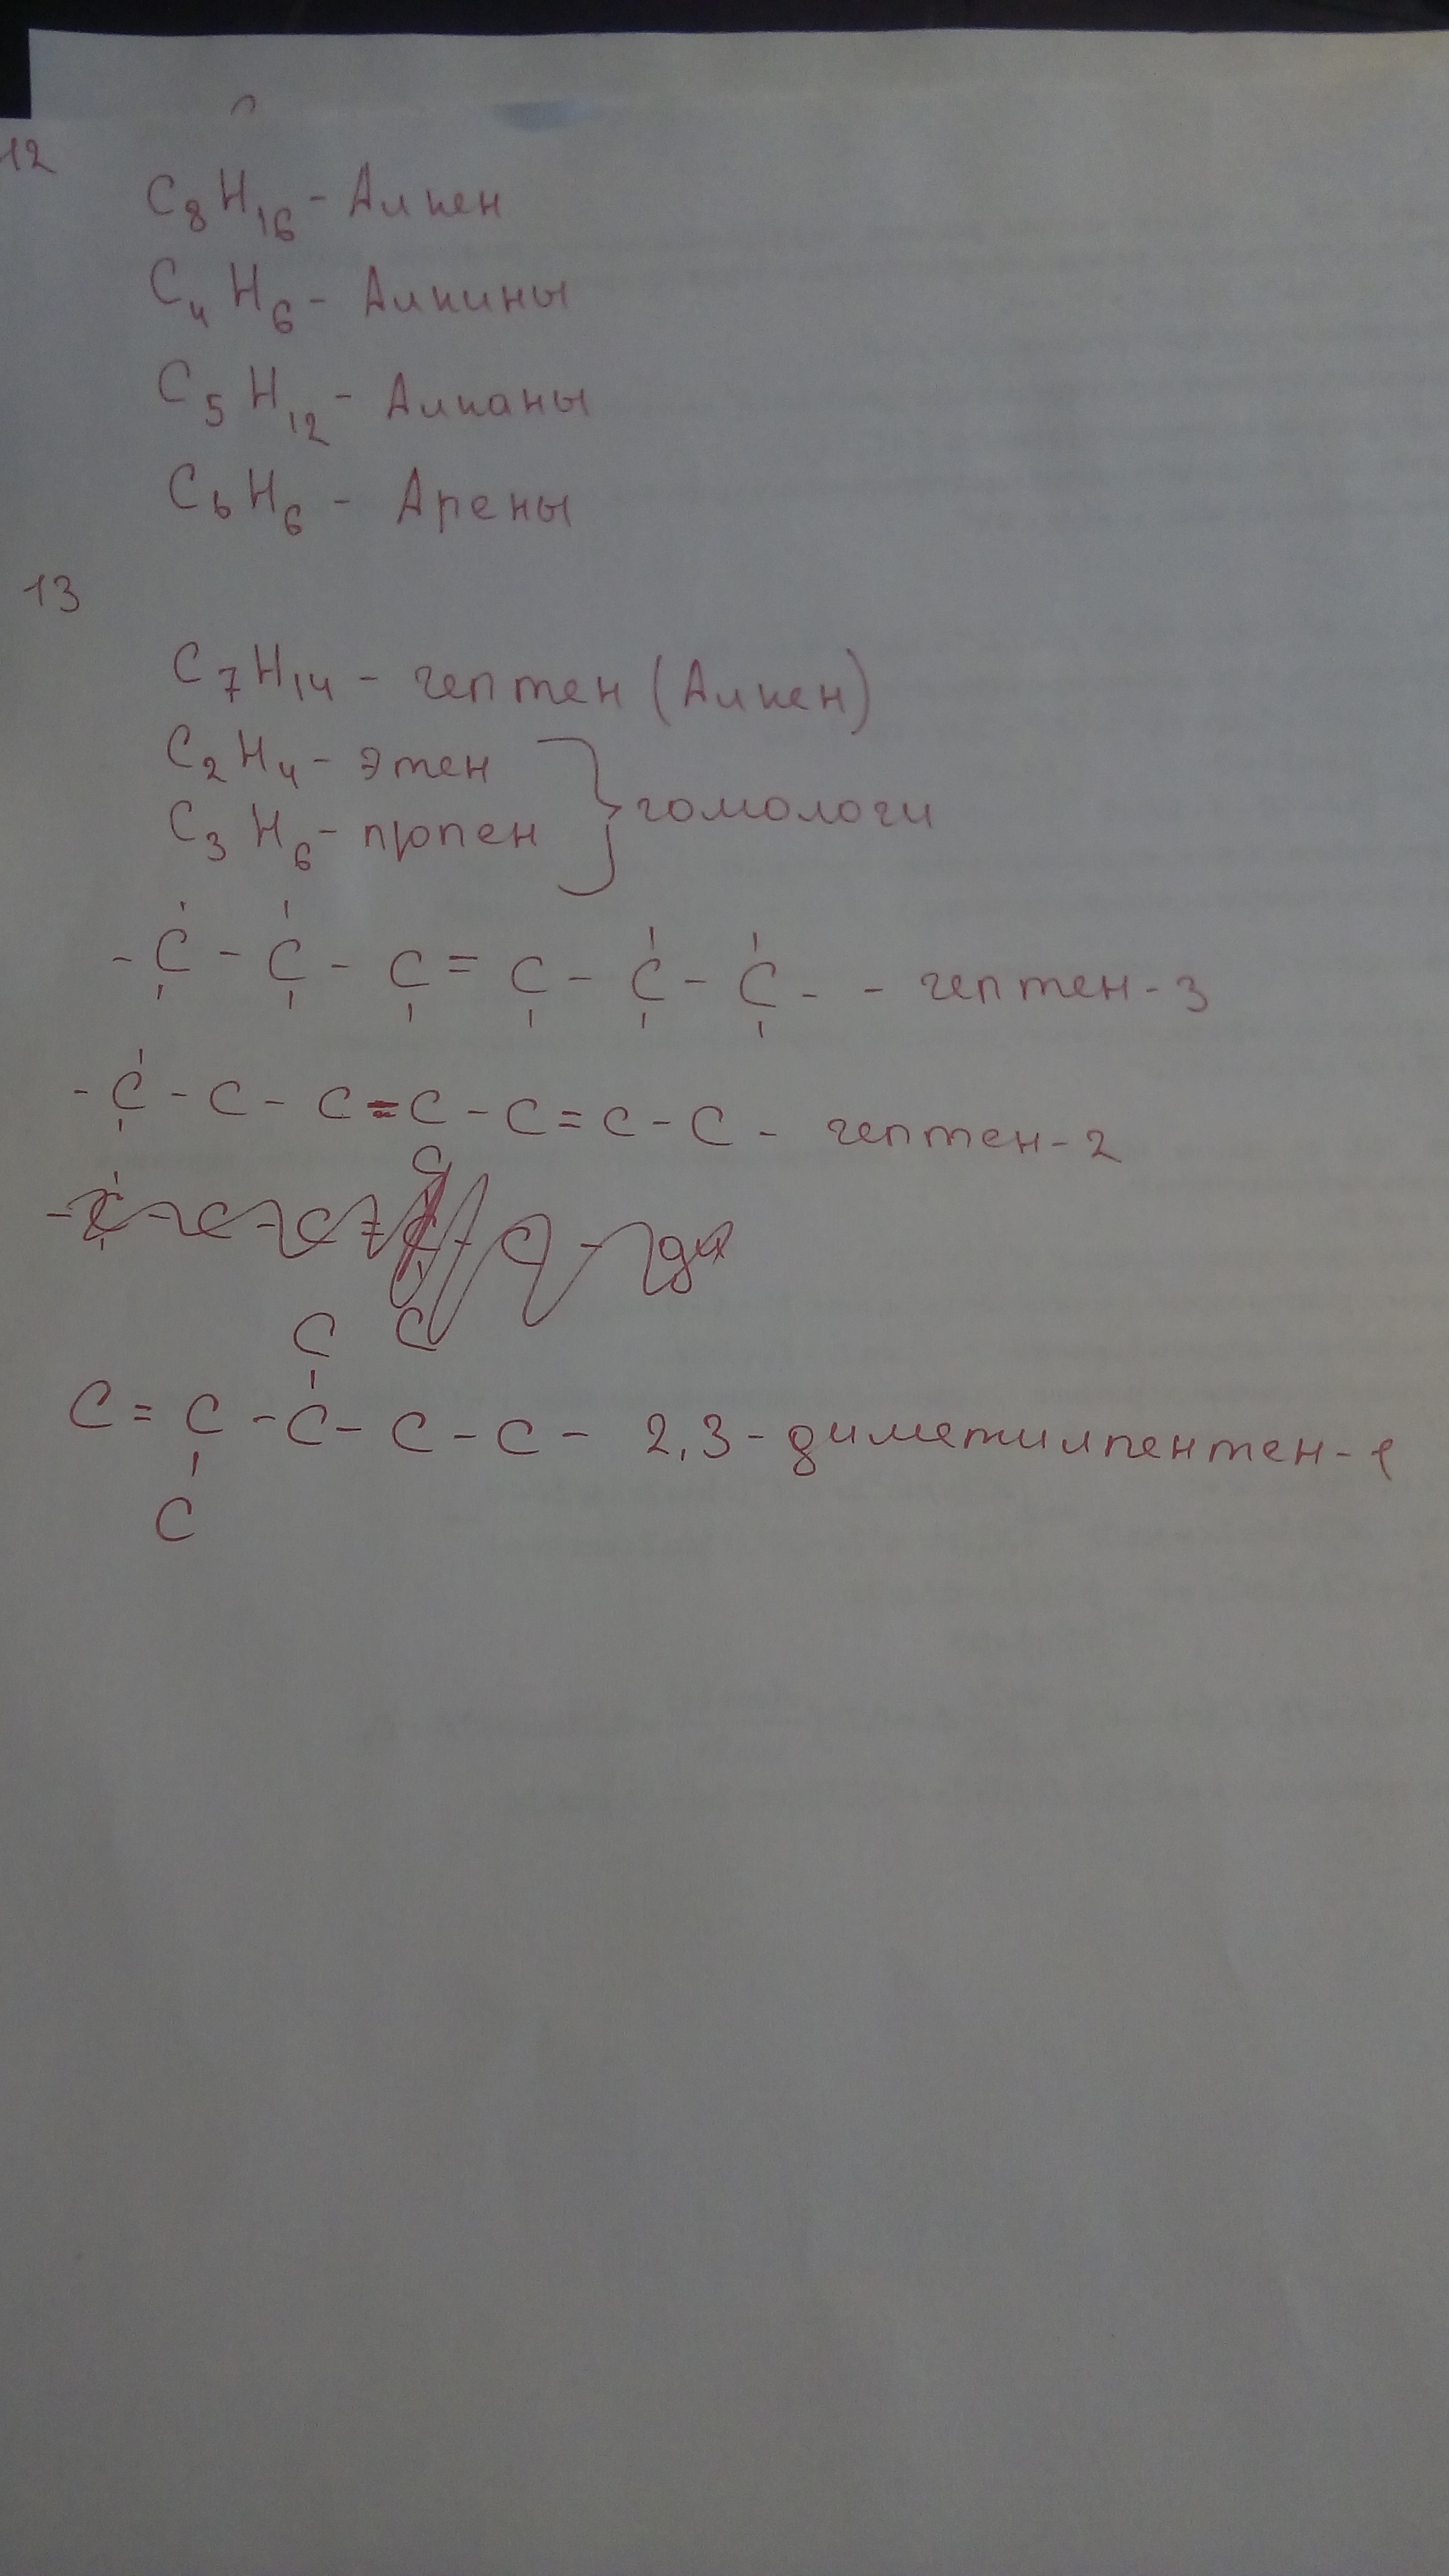 12
C8H16 - Алкен
C4H6 - Алкины
C5H12 - Алканы
C6H6 - Арены
13
C7H14 - гептен (Алкен)
C2H4 - этен
C3H6 - пропен
} гомологи
- C - C - C = C - C - C - - гептен-3
- C - C - C = C - C = C - C - гептен-2
C C
C = C - C - C - C - 2,3-диметилпентен-1
C